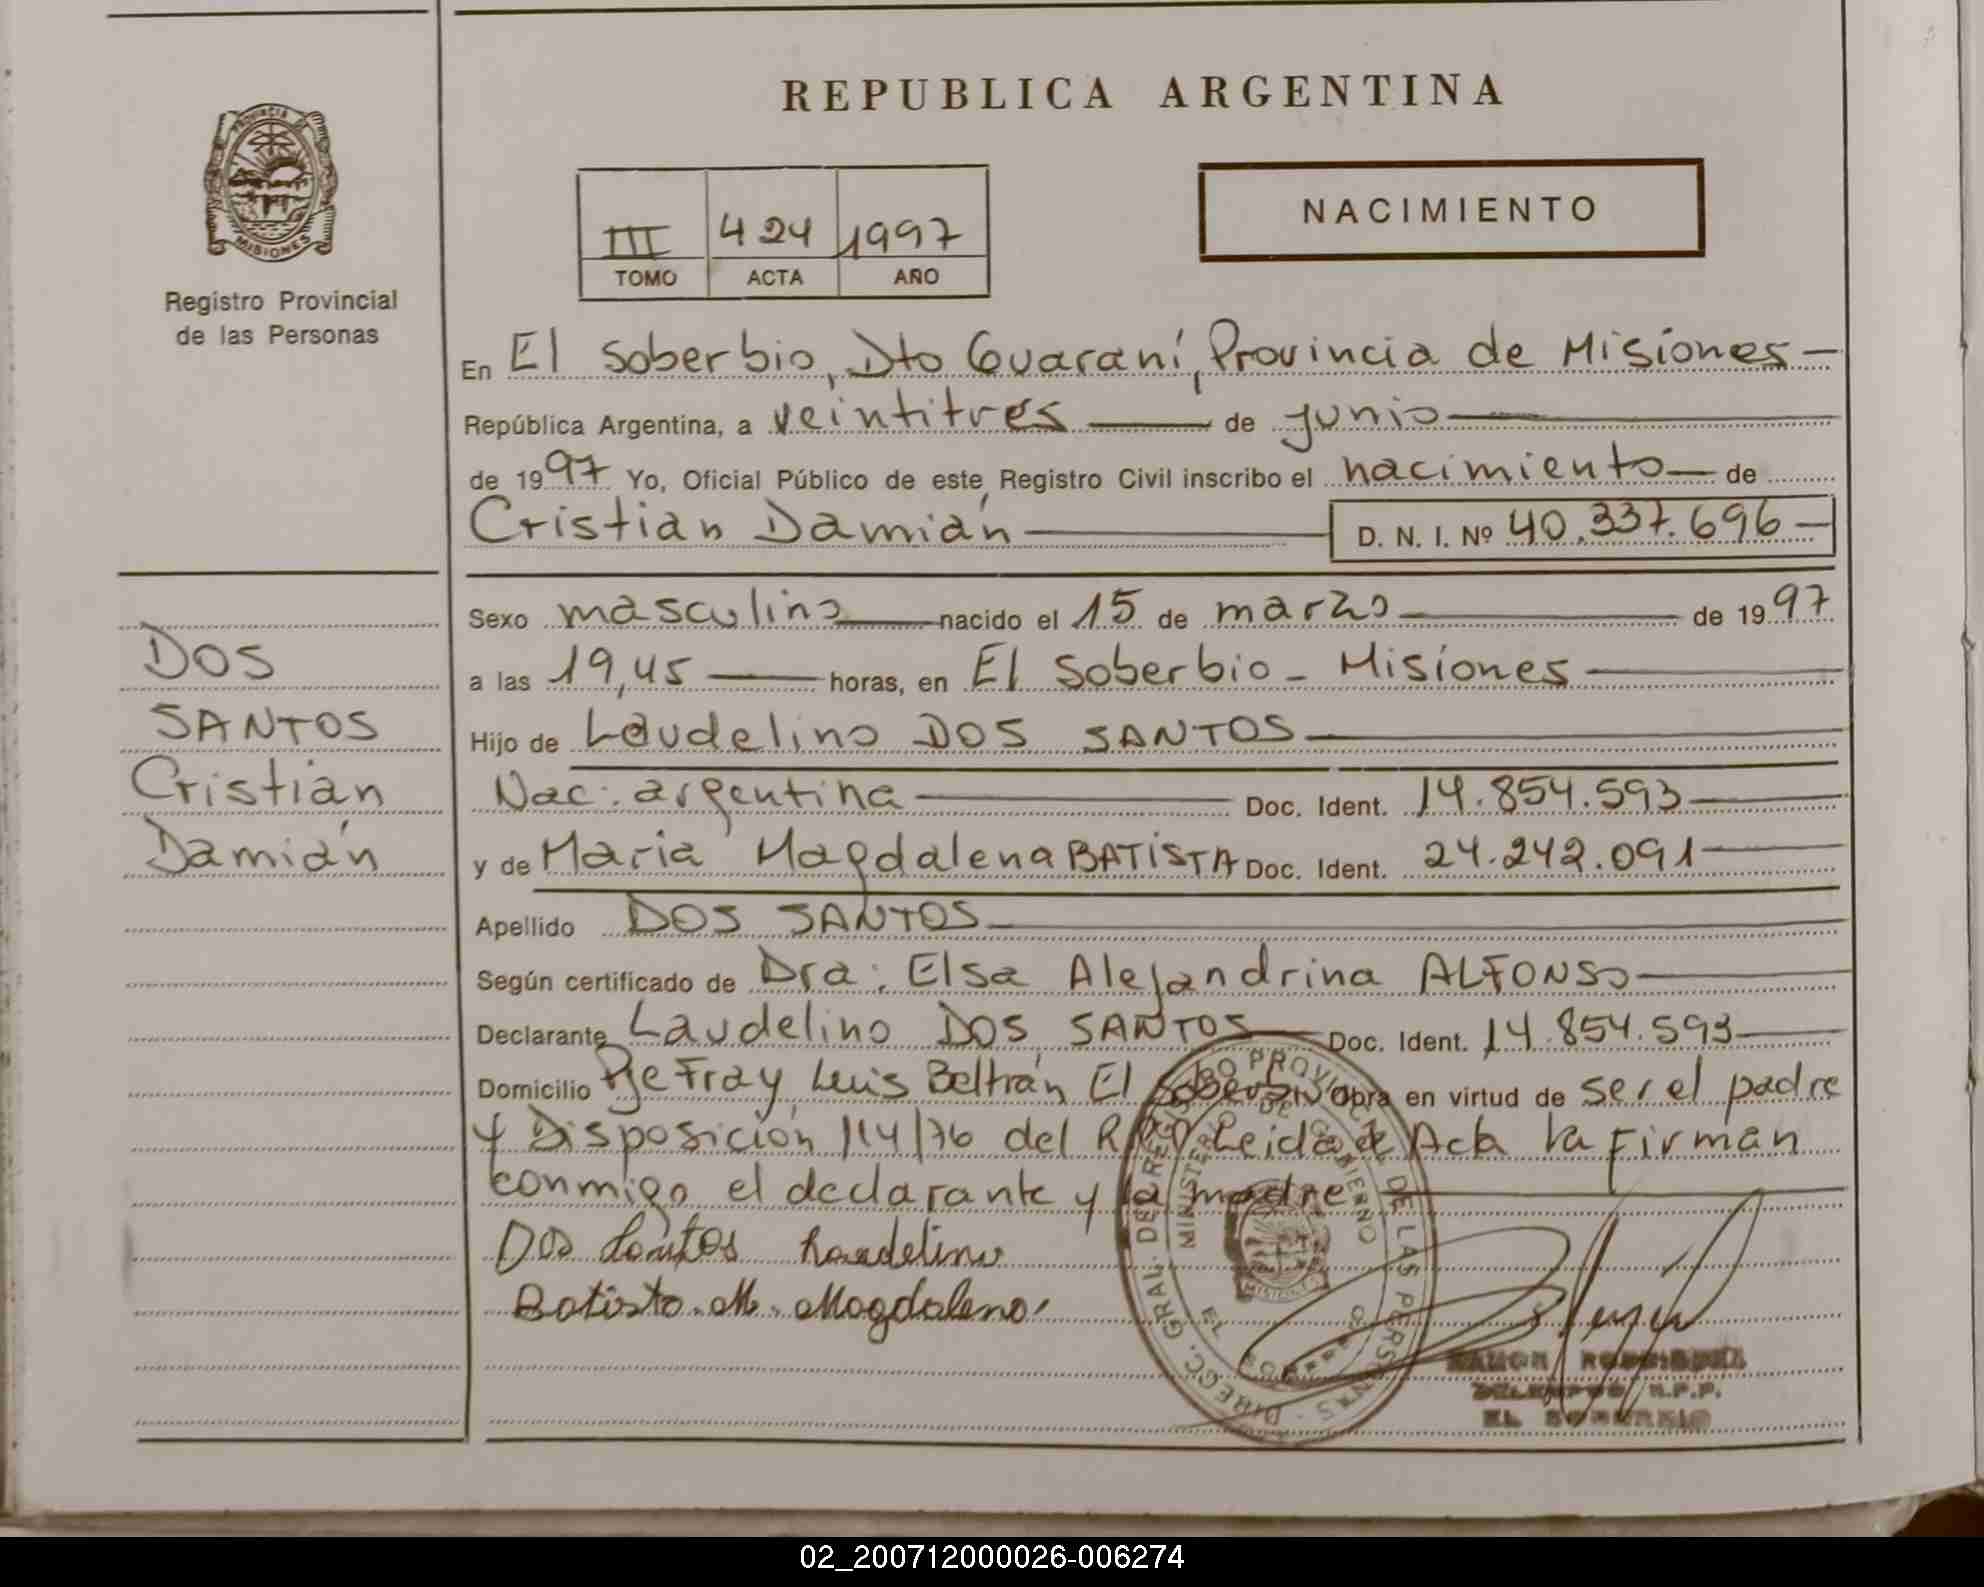 REPUBLICA ARGENTINA
PROVINCIA DE
MISIONES
Registro Provincial
de las Personas
III 424 1997
TOMO ACTA AÑO
NACIMIENTO
En El Soberbio, Dto Guaraní, Provincia de Misiones
República Argentina, a veintitres de junio
de 1997 Yo, Oficial Público de este Registro Civil inscribo el nacimiento de
Cristian Damián D. N. I. Nº 40.337.696
DOS
SANTOS
Cristian
Damián
Sexo masculino nacido el 15 de marzo de 1997
a las 19,45 horas, en El Soberbio - Misiones
Hijo de Laudelino DOS SANTOS
Nac. argentina Doc. Ident. 14.854.593
y de María Magdalena BATISTA Doc. Ident. 24.242.091
Apellido DOS SANTOS
Según certificado de Dra. Elsa Alejandrina ALFONSO
Declarante Laudelino DOS SANTOS Doc. Ident. 14.854.593
Domicilio Pje Fray Luis Beltrán El Soberbio Obra en virtud de ser el padre
y Disposición 114/76 del Leida el Acta la firman
conmigo el declarante y la madre
Dos Santos Laudelino
Batista M. Magdalena
DIRECC. GRAL. DE REGISTRO PROVINCIAL DE LAS PERSONAS
MINISTERIO DE GOBIERNO
MISIONES
EL SOBERBIO
RAMON RODRIGUEZ
DELEGADO R.P.P.
EL SOBERBIO
02_200712000026-006274